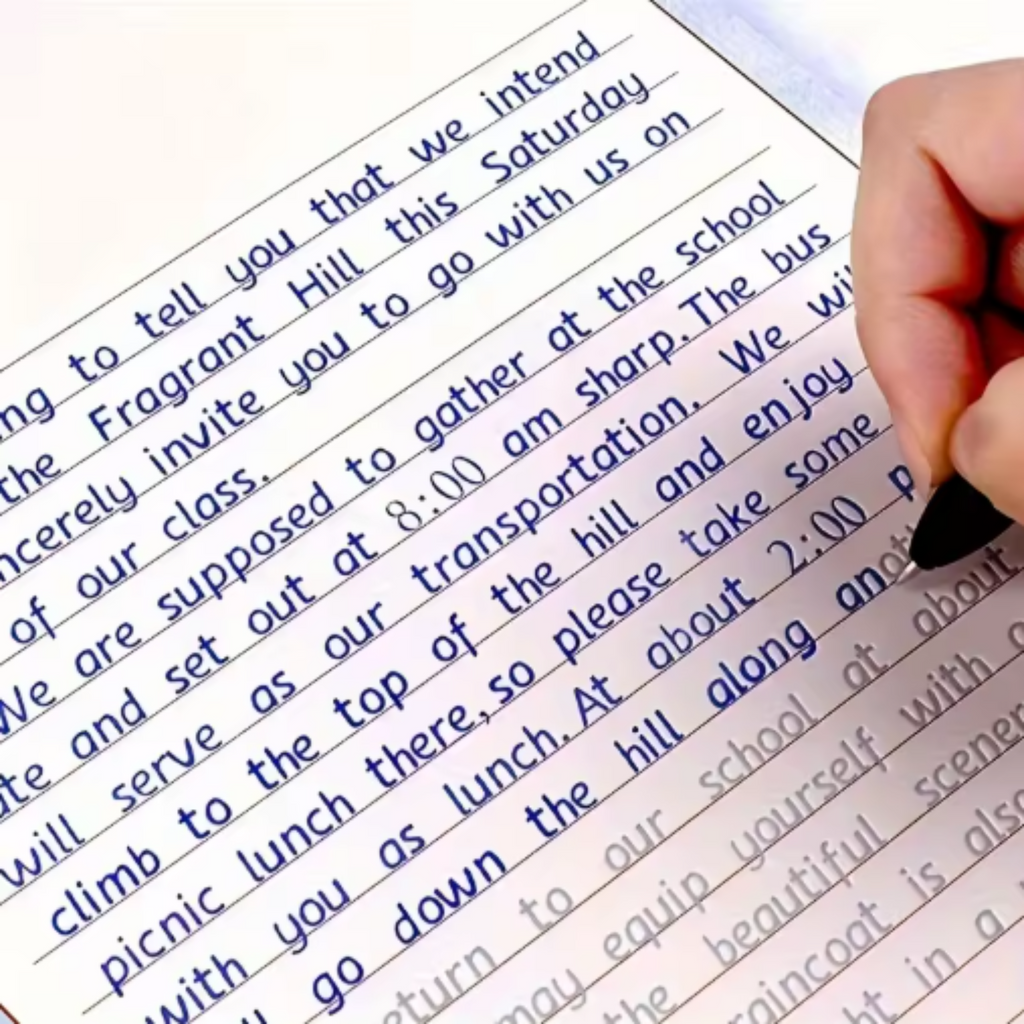 to tell you that we intend
the Fragrant Hill this Saturday
invite you to go with us on
of our class.
We are supposed to gather at the school
and set out at 8:00 am sharp. The bus
will serve as our transportation. We
climb to the top of the hill and enjoy
picnic lunch there, so please take some
with you as lunch. At about 2:00
go down the hill along
to our school at about
may equip yourself with
the beautiful
raincoat is also
in a